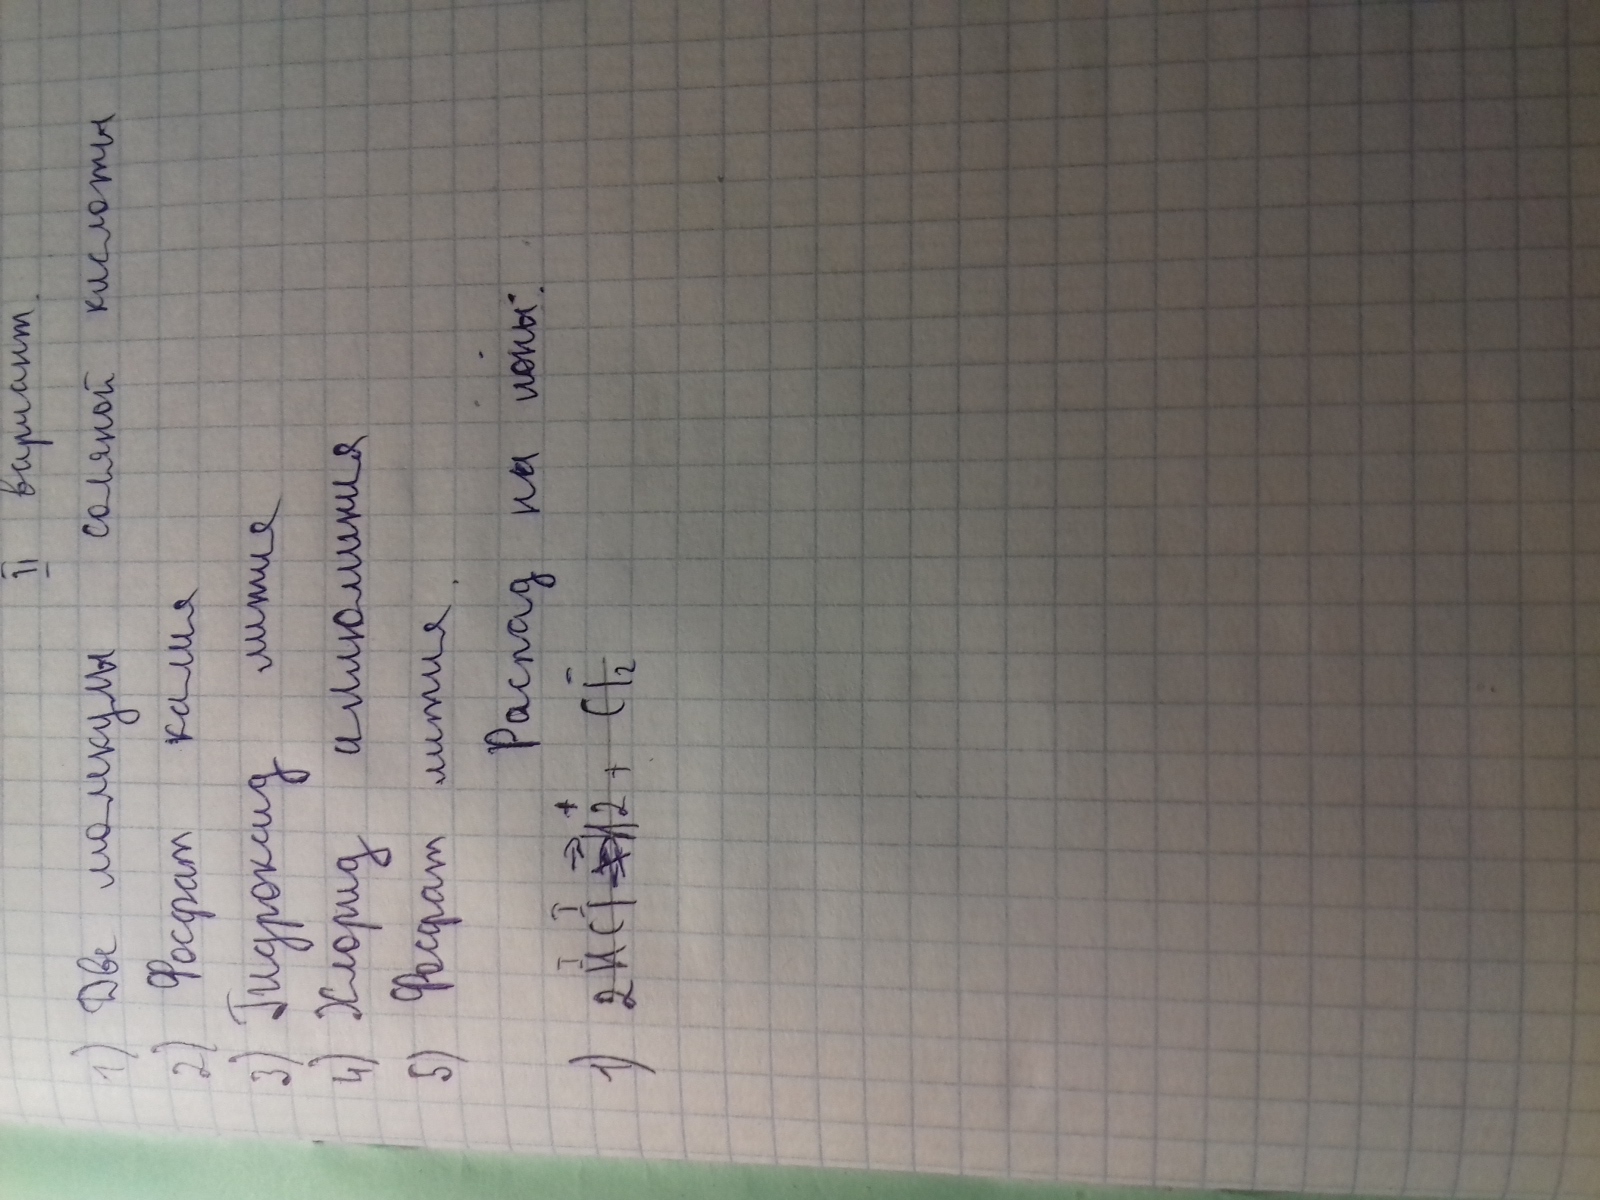 II вариант.
1) Две молекулы соляной кислоты
2) Фосфат калия
3) Гидроксид лития
4) Хлорид аллюминия
5) Фосфат лития.
Распад на ионы.
1) 2HCl → H2 + Cl2